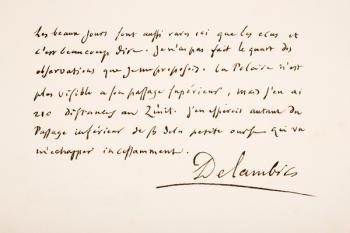 Les beaux jours sont aussi rares ici que les ecus et
c'est beaucoup dire. Je n'ai pas fait le quart des
observations que je me proposois. La Polaire n'est
plus visible a son passage superieur, mais j'en ai
210 distances au Zénit. j'en esperois autant du
Passage inférieur de β de la petite ourse qui va
m'echapper incessamment.
Delambre